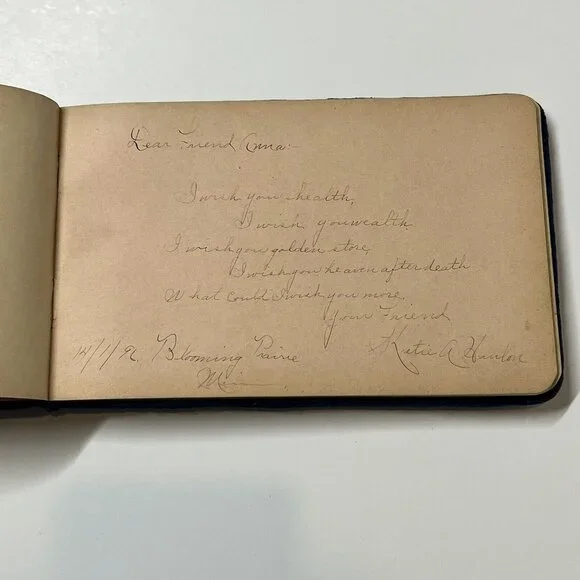 Dear Friend Anna:-
I wish you health,
I wish you wealth
I wish you golden store,
I wish you heaven after death
What could I wish you more.
Your Friend
Katie A Hanlon
14/1/96 Blooming Prairie
Minn